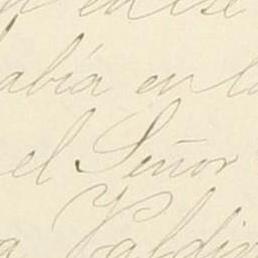 en
abía en l
el Señor
Valdiv